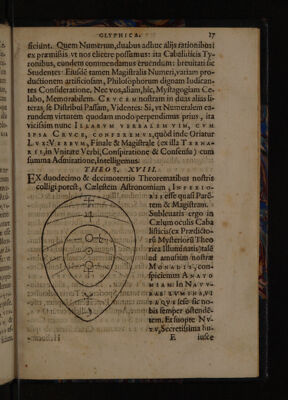 GLYPHICA. 17
ficiunt. Quem Numerum, duabus adhuc alijs rationibus:
ex præmissis vt nos elicere possemus: ita Cabalisticis Ty-
ronibus, eundem commendamus eruendum: breuitati sic
Studentes: Eiusdē tamen Magistralis Numeri, variam pro-
ductionem artificiosam, Philosophorum dignam Iudican-
tes Consideratione. Nec vos, aliam, hîc, Mystagogiam Ce-
labo, Memorabilem. CRVCEM nostram in duas alias li-
teras, se Distribui Passam, Videntes: Si, vt Numeralem ea-
rundem virtutem quodam modo perpendimus prius, ita
vicissim nunc ILLARVM VERBALEM VIM, CVM
IPSA CRVCE, CONFEREMVS, quòd inde Oriatur
LVX: VERBVM, Finale & Magistrale (ex illa TERNA-
RII, in Vnitate Verbi, Conspiratione & Consensu) cum
summa Admiratione, Intelligemus.
THEOR. XVIII.
EX duodecimo & decimotertio Theorematibus nostris
colligi potest, Cælestem Astronomiam, INFERIO-
RIS esse quasi Parē-
tem & Magistram.
Subleuatis ergo in
Cælum oculis Caba
listicis (ex Prædicto-
rū Mysteriorū Theo
rica Illuminatis) talē
ad amussim nostræ
MONADIS, con-
spiciemus ANATO
MIAM: IN NATV-
RAE LVMINA, VI
TAQVE sese sic no-
bis semper ostendē-
tem. Et suopte NV-
TV, Secretissima hu-
E iusce